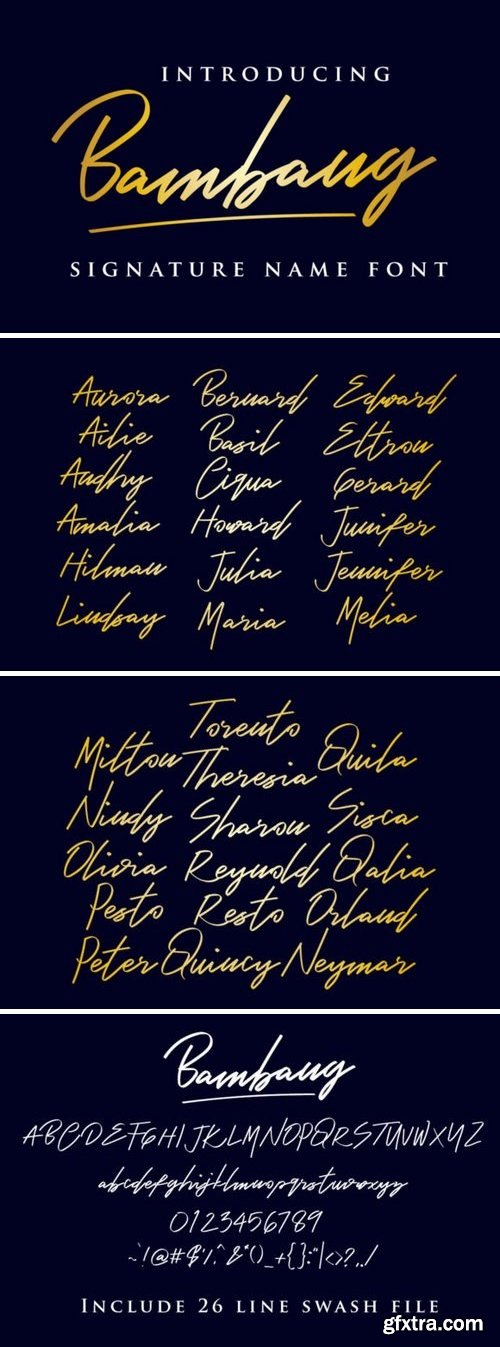 INTRODUCING
Bambang
SIGNATURE NAME FONT
Aurora Bernard Edward
Ailie Basil Eltron
Audhy Ciqua Gerard
Amalia Howard Junifer
Hilman Julia Jennifer
Lindsay Maria Melia
Toronto
Milton Theresia Quila
Nindy Sharon Sisca
Olivia Reynold Qalia
Pesto Resto Orland
Peter Quincy Neymar
Bambang
ABCDEFGHIJKLMNOPQRSTUVWXYZ
abcdefghijklmnopqrstuvwxyz
0123456789
~`!@#$%^&*()_+{}:"|<>?,./
INCLUDE 26 LINE SWASH FILE
gfxtra.com